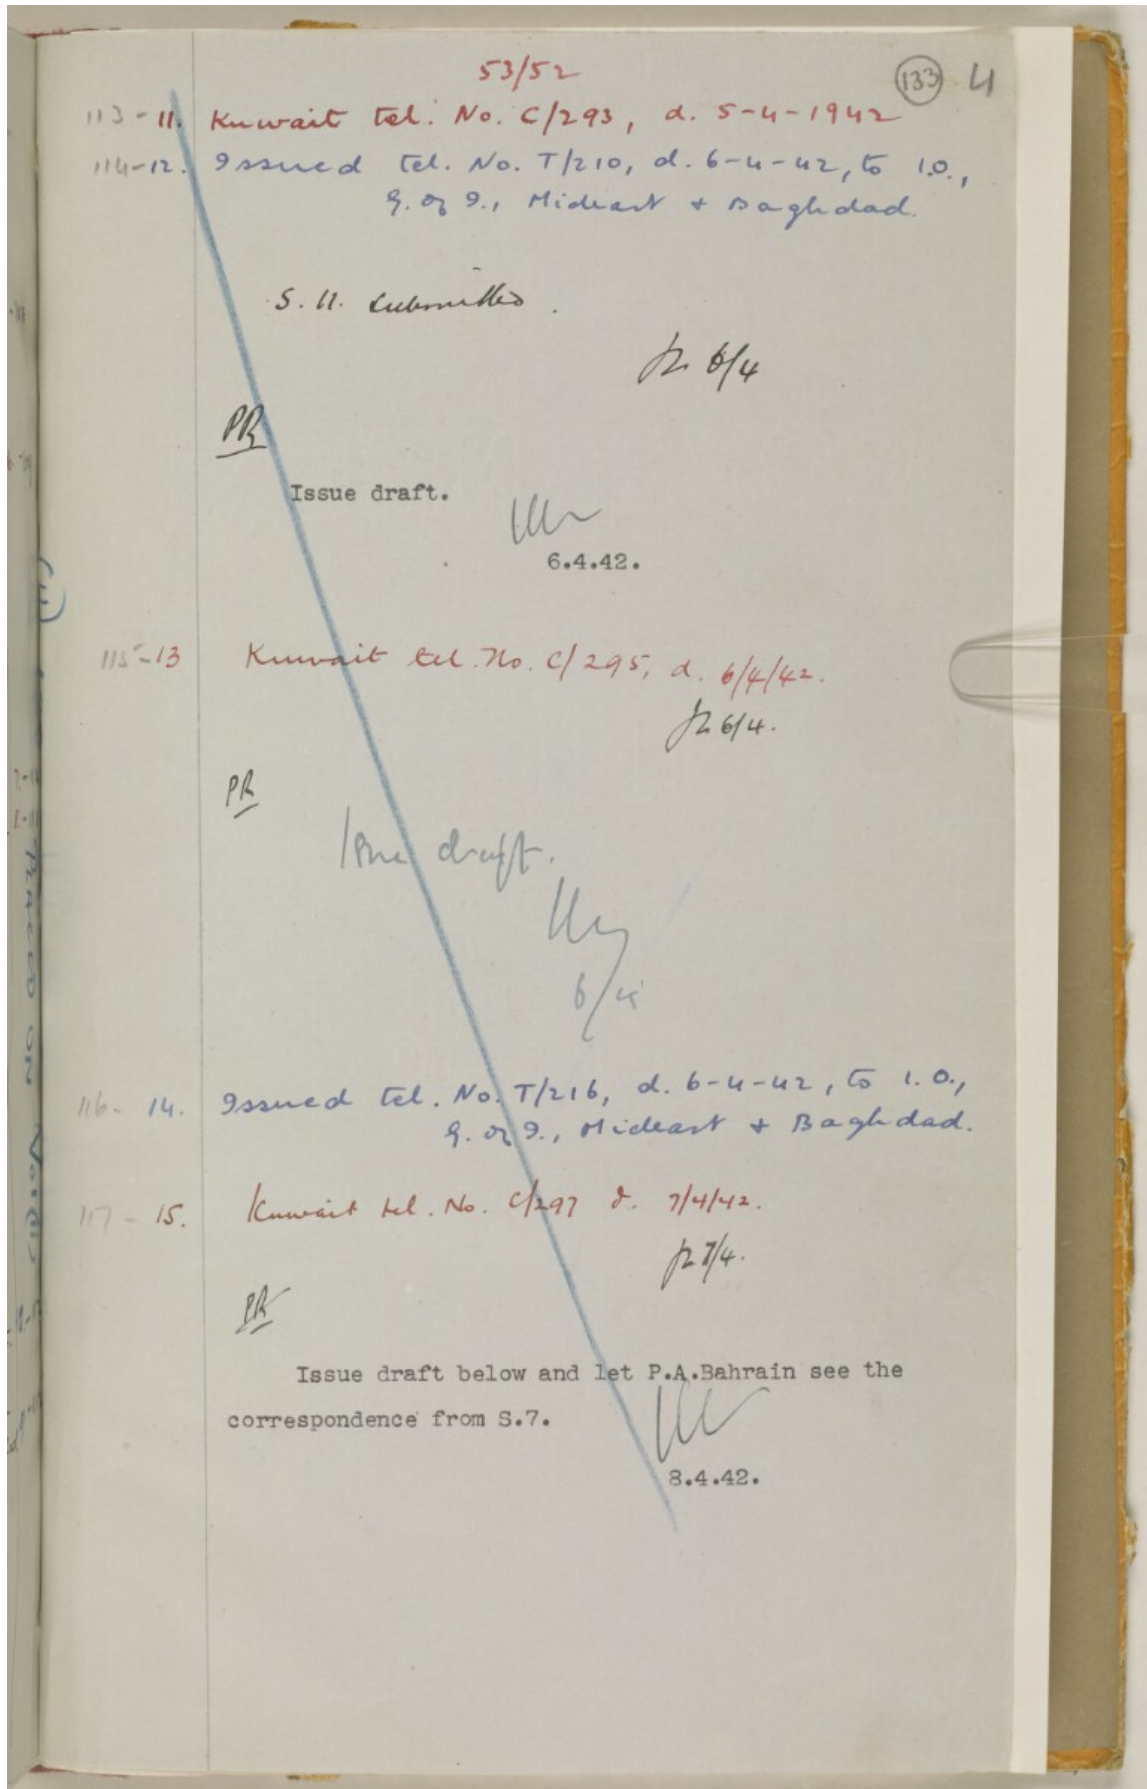 53/52
133 4
113-11. Kuwait tel. No. C/293, d. 5-4-1942
114-12. Issued tel. No. T/210, d. 6-4-42, to I.O.,
G. of I., Mideast + Baghdad.
S. 11. submitted.
6/4
PR
Issue draft.
6.4.42.
115-13 Kuwait tel. No. C/295, d. 6/4/42.
6/4.
PR
Issue draft.
6/4
116-14. Issued tel. No. T/216, d. 6-4-42, to I.O.,
G. of I., Mideast + Baghdad.
117-15. Kuwait tel. No. C/297 d. 7/4/42.
7/4.
PR
Issue draft below and let P.A.Bahrain see the
correspondence from S.7.
8.4.42.